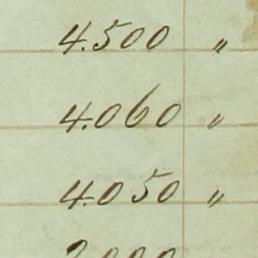 4.500 〃
4.060 〃
4.050 〃